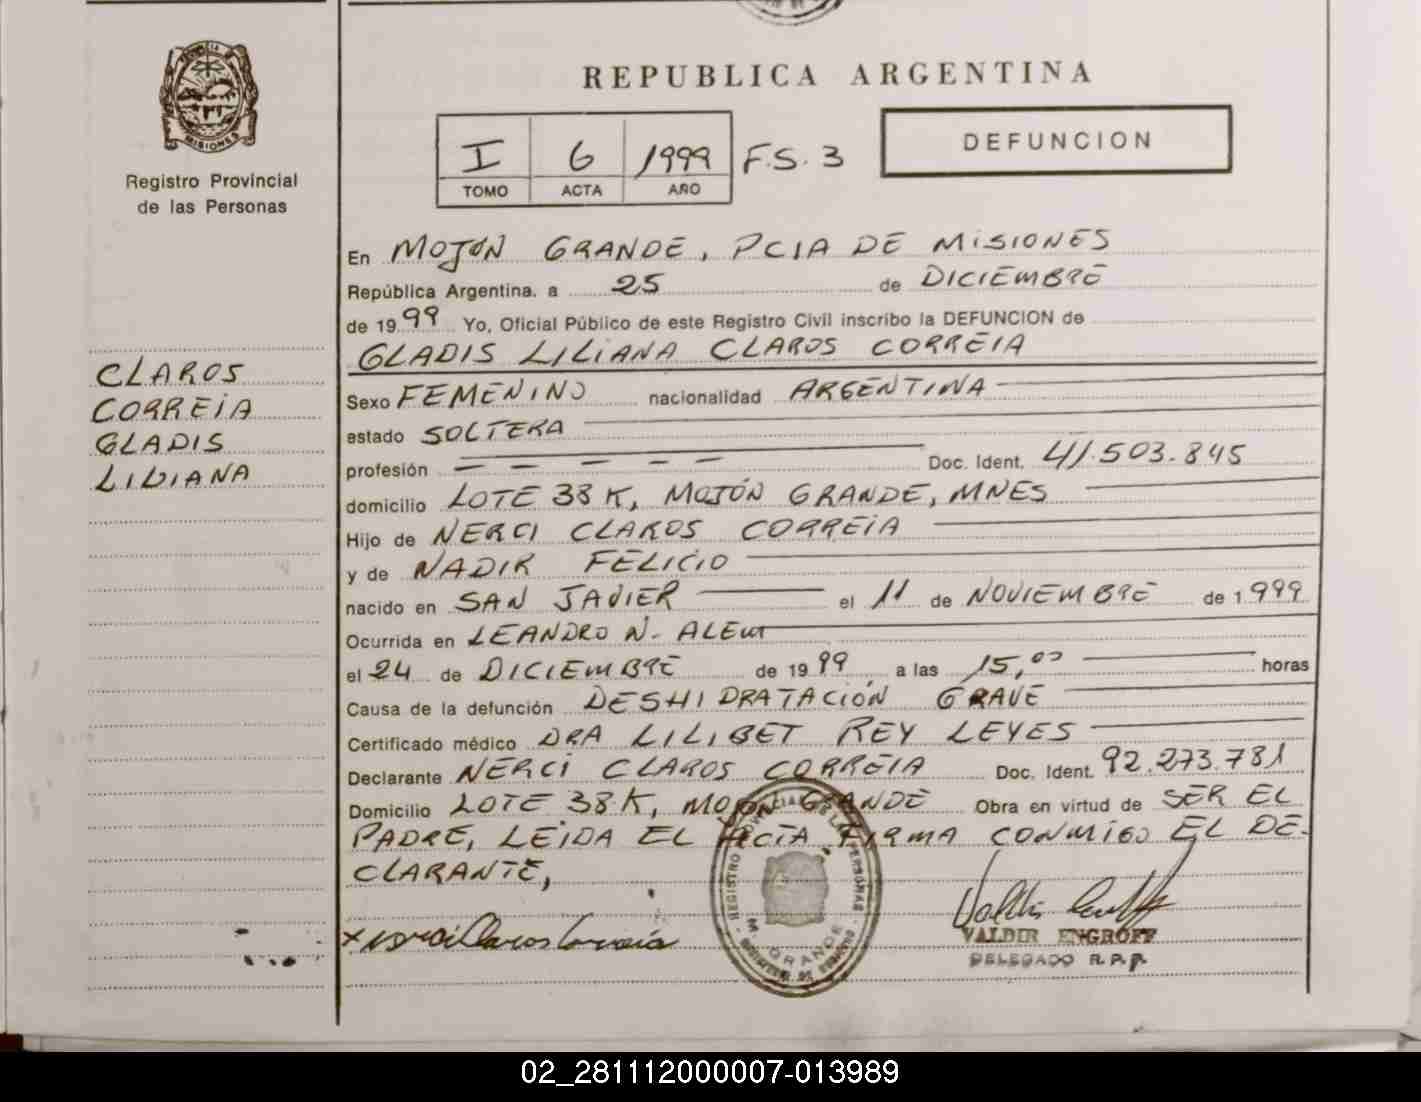 PROVINCIA DE
MISIONES
Registro Provincial
de las Personas
REPUBLICA ARGENTINA
I 6 1999 F.S. 3
TOMO ACTA AÑO
DEFUNCION
En MOJÓN GRANDE, PCIA DE MISIONES
República Argentina, a 25 de DICIEMBRE
de 19 99 Yo, Oficial Público de este Registro Civil inscribo la DEFUNCION de
GLADIS LILIANA CLAROS CORREIA
CLAROS
CORREIA
GLADIS
LILIANA
Sexo FEMENINO nacionalidad ARGENTINA
estado SOLTERA
profesión — — — — — Doc. Ident. 41.503.845
domicilio LOTE 38 K, MOJÓN GRANDE, MNES
Hijo de NERCI CLAROS CORREIA
y de NADIR FELICIO
nacido en SAN JAVIER el 11 de NOVIEMBRE de 1.999
Ocurrida en LEANDRO N. ALEM
el 24 de DICIEMBRE de 19 99 a las 15,00 horas
Causa de la defunción DESHIDRATACIÓN GRAVE
Certificado médico DRA LILIBET REY LEYES
Declarante NERCI CLAROS CORREIA Doc. Ident. 92.273.781
Domicilio LOTE 38 K, MOJÓN GRANDE Obra en virtud de SER EL
PADRE, LEIDA EL ACTA FIRMA CONMIGO EL DE-
CLARANTE,
REGISTRO PROVINCIAL DE LAS PERSONAS
M. GRANDE
VALDIR ENGROFF
DELEGADO R.P.P.
02_281112000007-013989